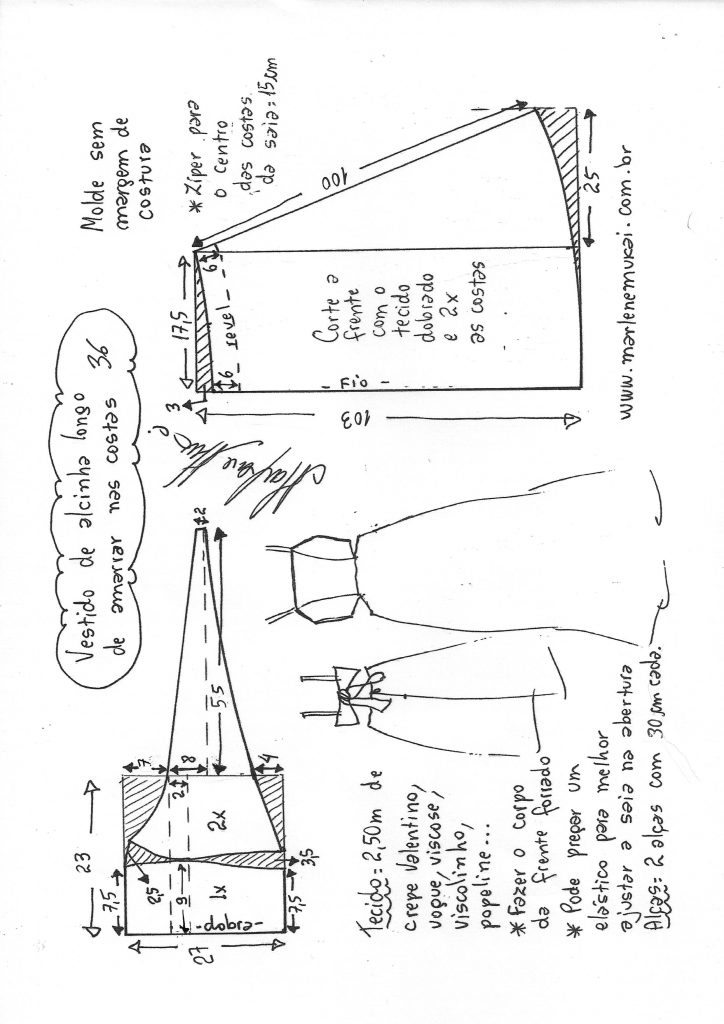 Vestido de alcinha longo
de amarrar nas costas 36
Molde sem
margem de
costura
* Zíper para
o centro
das costas
da saia = 15cm
23
7,5
2,5
7
2
8
55
2
4
3,5
7,5
9
27
2x
1x
-dobra-
17,5
3
6
6
- revel -
100
103
25
- Fio -
Corte a
frente
com o
tecido
dobrado
e 2x
as costas
Tecido = 2,50m de
crepe Valentino,
vogue, viscose,
viscolinho,
popeline...
* Fazer o corpo
da frente forrado
* Pode pregar um
elástico para melhor
ajustar a saia na abertura
Alças = 2 alças com 30cm cada.
www.marlenemukai.com.br